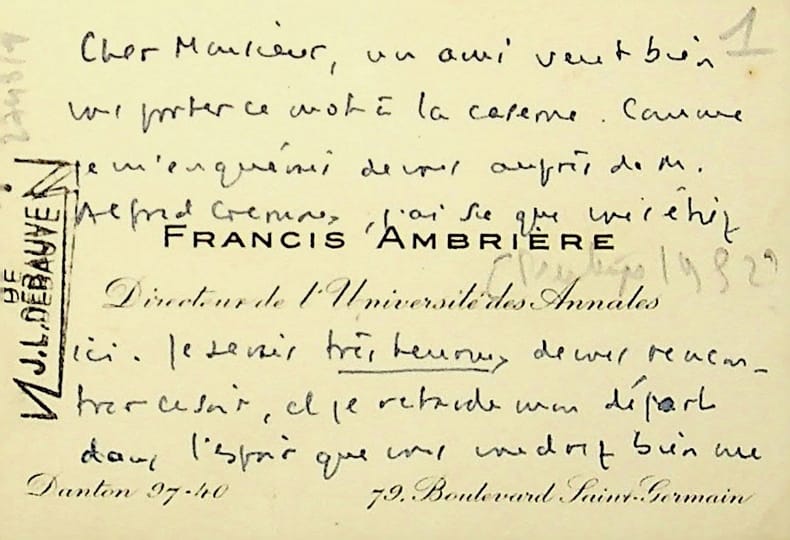 1
Cher Monsieur, un ami veut bien
vous porter ce mot à la caserne. Comme
je m'enquérais de vous auprès de M.
Alfred , j'ai su que vous étiez
FRANCIS AMBRIÈRE
Directeur de l'Université des Annales
ici. Je serais très heureux de vous rencon-
trer ce soir, et je retarde mon départ
dans l'espoir que vous voudrez bien me
Danton 97-40
79, Boulevard Saint-Germain
J.L. DEBAUVE